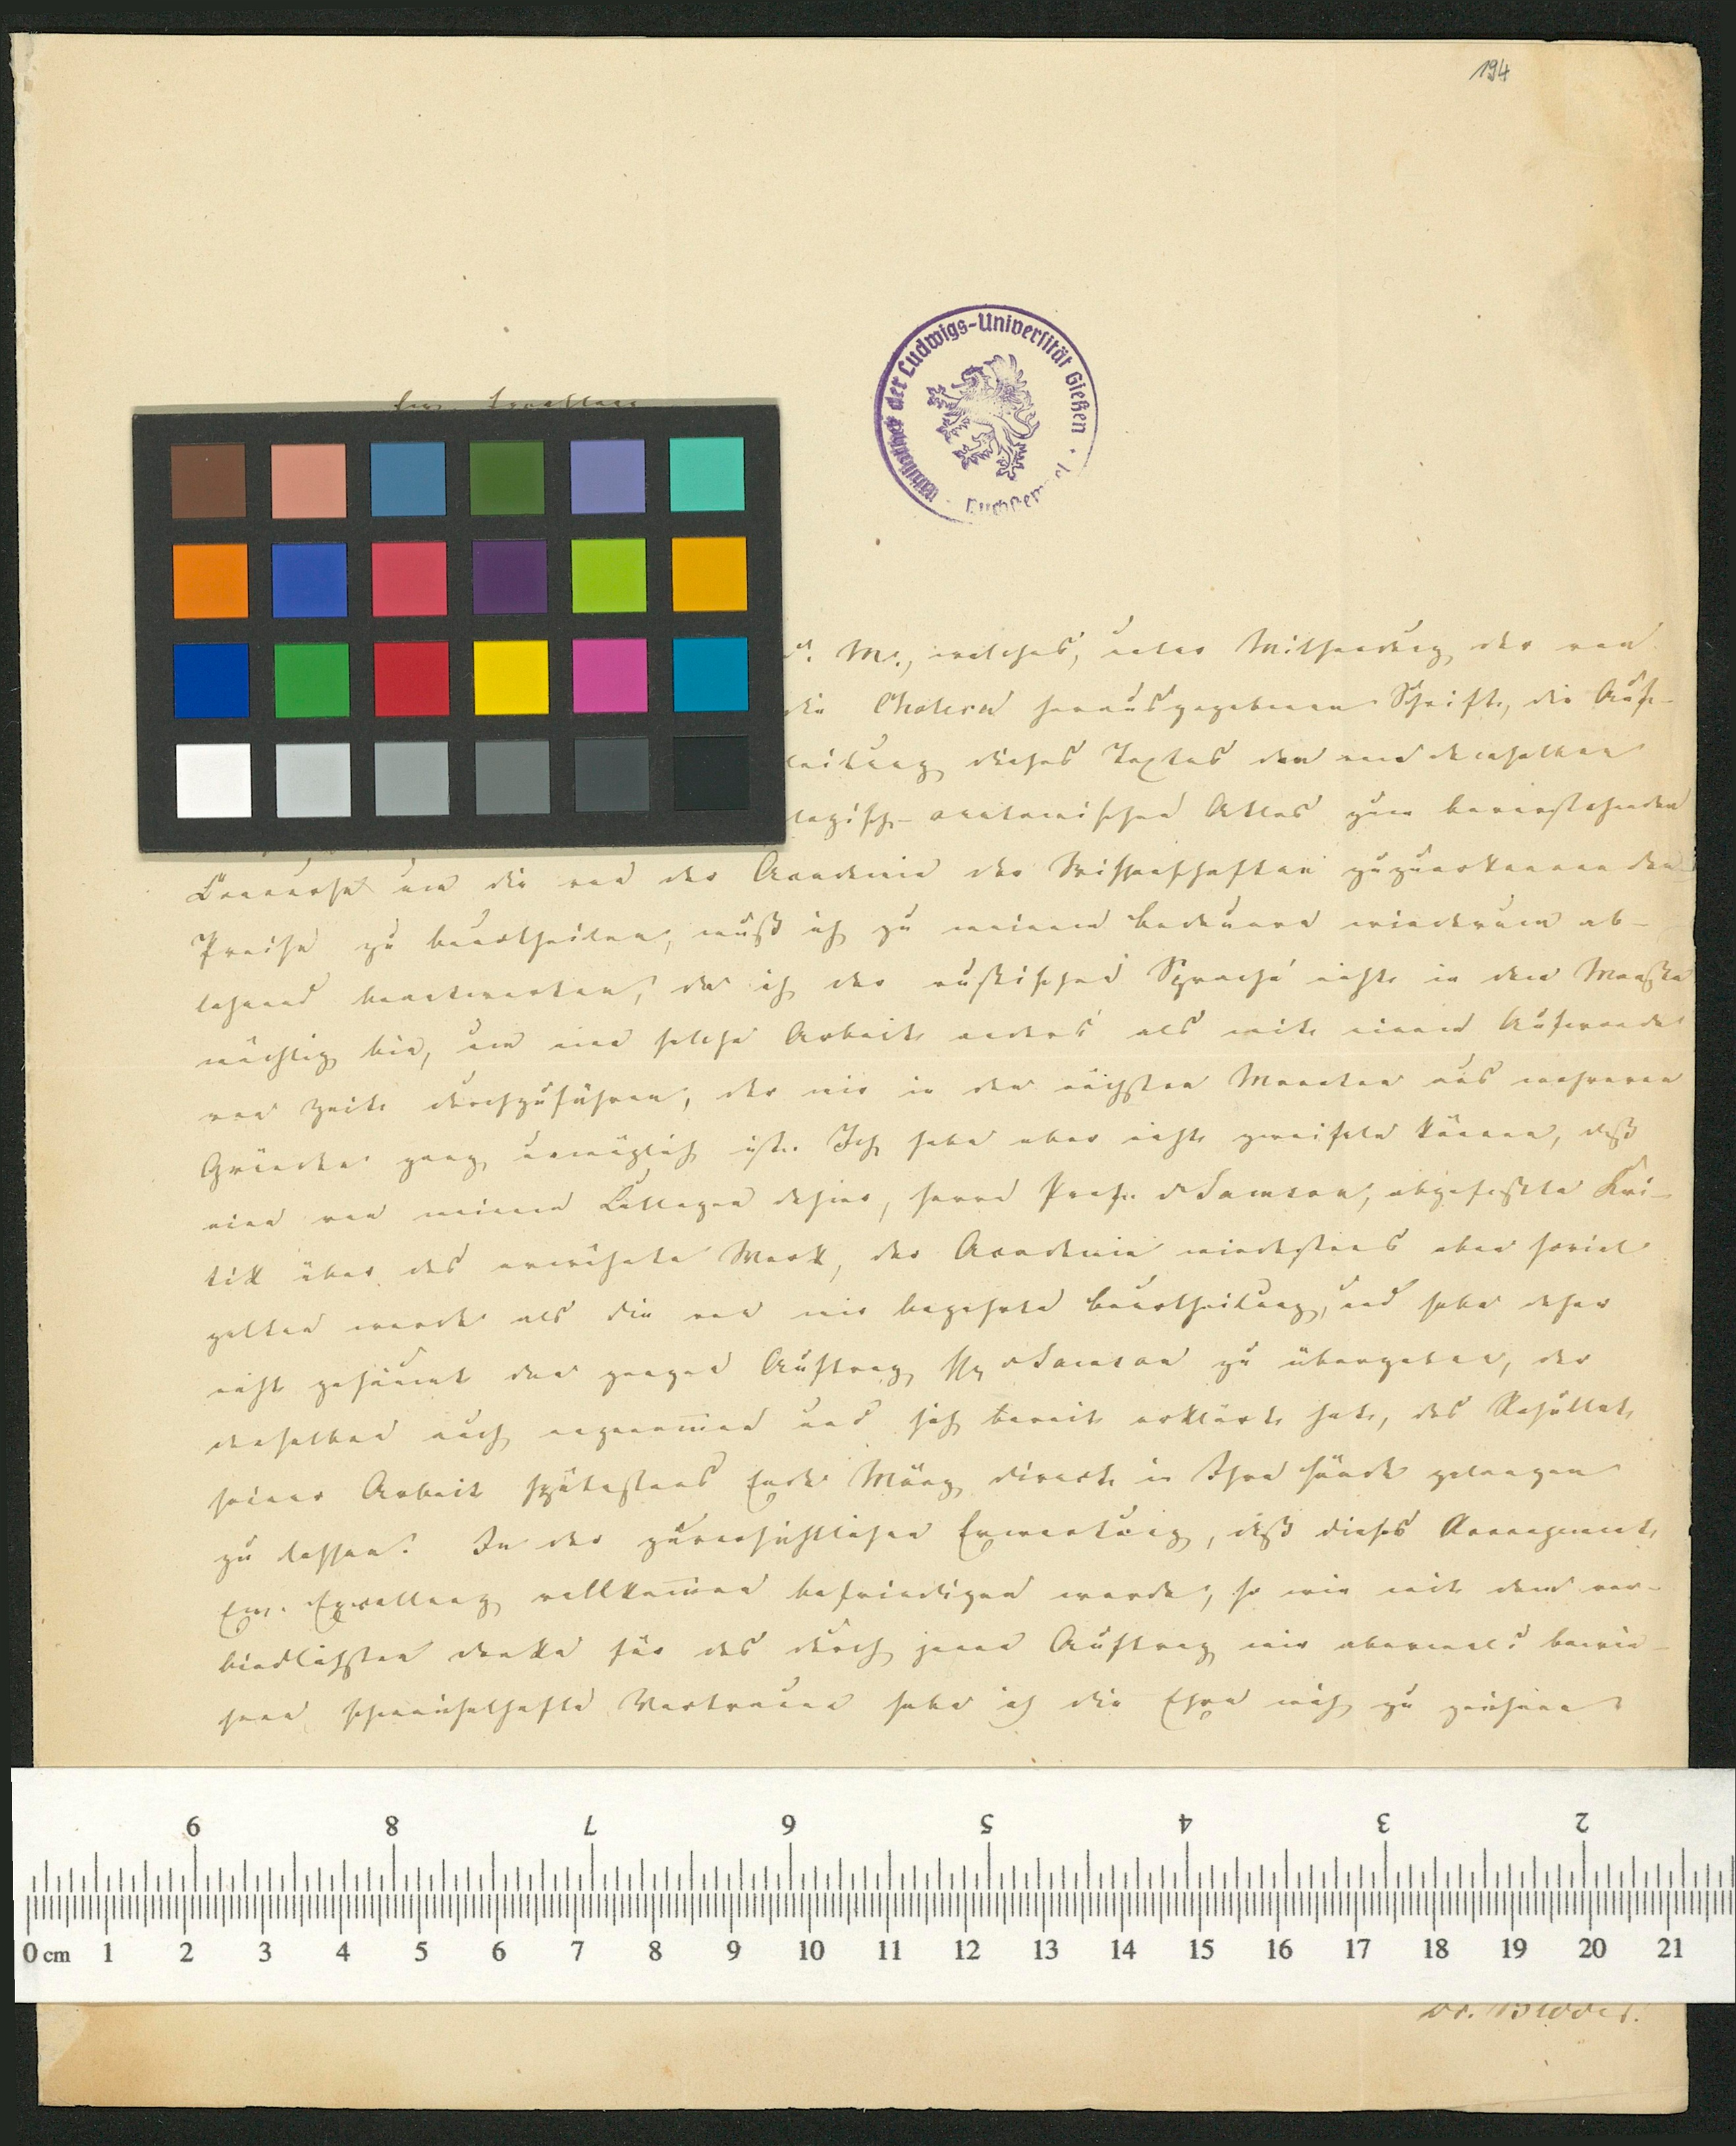 194
Bibliothek der Ludwigs-Universität Gießen
Ew. Excellenz
d. M., welches, unter Mittheilung der von
die Cholera herausgegebenen Schrift, die Auf-
leitung dieses Textes den von demselben
logisch-anatomischen Atlas zum bevorstehenden
Concurse um die von der Academie der Wissenschaften zuzuerkennenden
Preise zu beurtheilen, muß ich zu meinem Bedauern wiederum ab-
lehnend beantworten, da ich der russischen Sprache nicht in dem Maaße
mächtig bin, um eine solche Arbeit anders als mit einem Aufwande
von Zeit durchzuführen, der mir in den nächsten Monaten aus mehreren
Gründen ganz unmöglich ist. Ich habe aber nicht zweifeln können, daß
eine von meinem Collegen dahier, Herrn Prof. v Samson, abgefaßte Kri-
tik über das erwähnte Werk, der Academie mindestens eben soviel
gelten werde als die von mir begehrte Beurtheilung, und habe daher
nicht gesäumt den ganzen Auftrag Hn v Samson zu übergeben, der
denselben auch angenommen und sich bereit erklärt hat, das Resultat
seiner Arbeit spätestens Ende März direct in Ihre Hände gelangen
zu lassen. In der zuversichtlichen Erwartung, daß dieses Arrangement
Ew. Excellenz vollkommen befriedigen werde, so wie mit dem ver-
bindlichsten Danke für das durch jenen Auftrag mir abermals bewie-
sene schmeichelhafte Vertrauen habe ich die Ehre mich zu zeichnen
9 8 7 6 5 4 3 2
0 cm 1 2 3 4 5 6 7 8 9 10 11 12 13 14 15 16 17 18 19 20 21
Dr. Bidder.